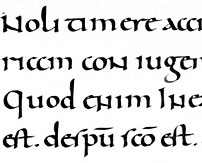 Noli timere acci
riam con iuge
Quod enim In e
est. de spū scō est.